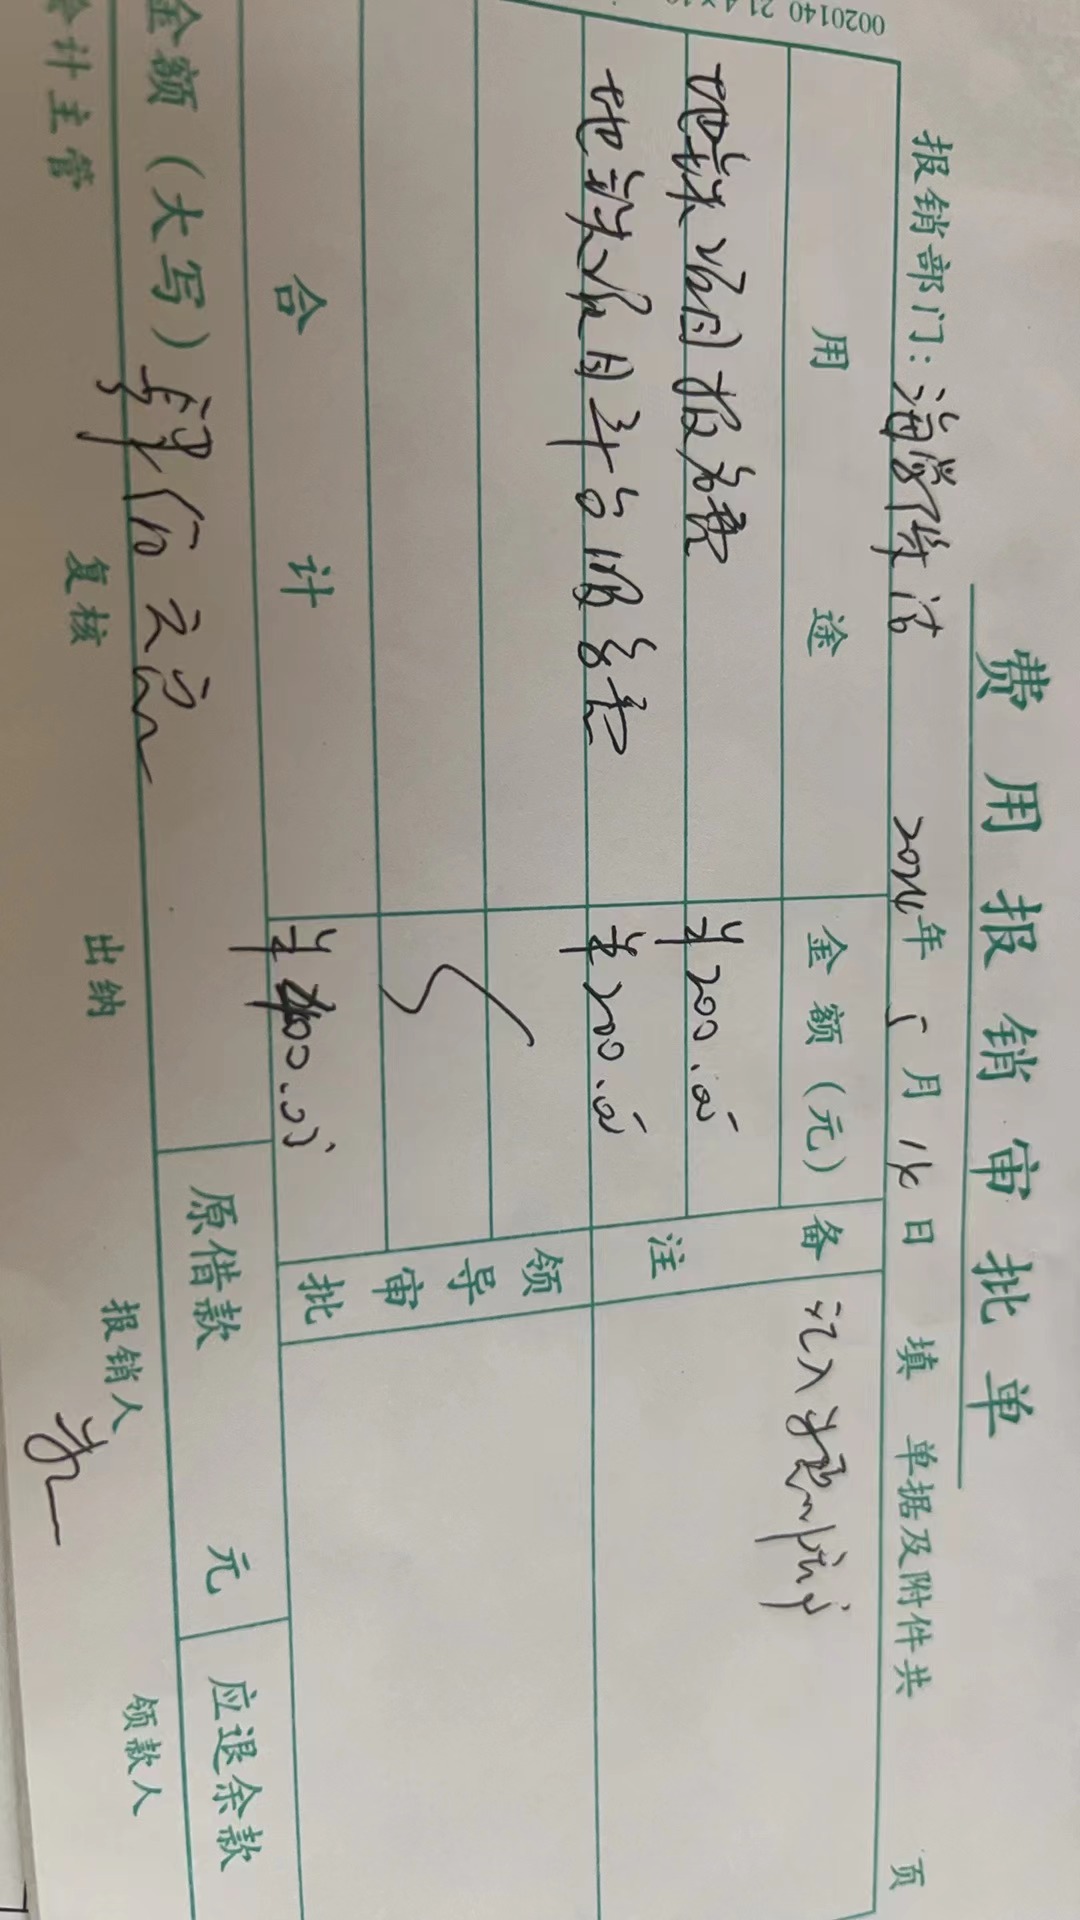 0020140 21.4×1
费用报销审批单
报销部门: 2024年5月14日填 单据及附件共 页
用途 金额(元) 备注
地球项目报名费 ¥200.00
地球项目平台服务费 ¥200.00
领导审批
合计 ¥400.00
金额(大写)肆佰元整 原借款 元 应退余款
会计主管 复核 出纳 报销人 领款人